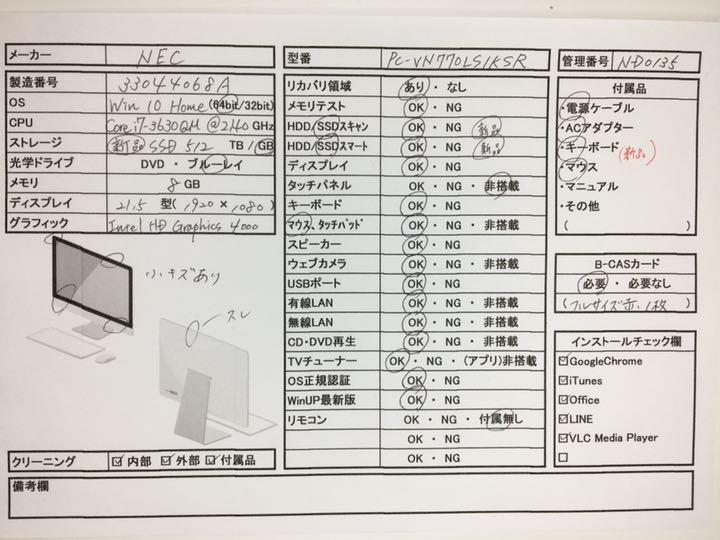 メーカー NEC
型番 PC-VN770LS1KSR
管理番号 ND0135
製造番号 33044068A
OS Win 10 Home (64bit/32bit)
CPU Core i7-3630QM @2.40 GHz
ストレージ 新品 SSD 512 TB / GB
光学ドライブ DVD ・ ブルーレイ
メモリ 8 GB
ディスプレイ 21.5 型(1920 × 1080)
グラフィック Intel HD Graphics 4000
小キズあり
スレ
クリーニング ☑ 内部 ☑ 外部 ☑ 付属品
リカバリ領域 あり ・ なし
メモリテスト OK ・ NG
HDD/SSDスキャン OK ・ NG 新品
HDD/SSDスマート OK ・ NG 新品
ディスプレイ OK ・ NG
タッチパネル OK ・ NG ・ 非搭載
キーボード OK ・ NG
マウス、タッチパッド OK ・ NG
スピーカー OK ・ NG
ウェブカメラ OK ・ NG ・ 非搭載
USBポート OK ・ NG
有線LAN OK ・ NG ・ 非搭載
無線LAN OK ・ NG ・ 非搭載
CD・DVD再生 OK ・ NG ・ 非搭載
TVチューナー OK ・ NG ・ (アプリ)非搭載
OS正規認証 OK ・ NG
WinUP最新版 OK ・ NG
リモコン OK ・ NG ・ 付属無し
OK ・ NG
OK ・ NG
付属品
・電源ケーブル
・ACアダプター
・キーボード (新品)
・マウス
・マニュアル
・その他
( )
B-CASカード
必要 ・ 必要なし
(フルサイズ赤、1枚)
インストールチェック欄
☑GoogleChrome
☑iTunes
☑Office
☑LINE
☑VLC Media Player
□
備考欄